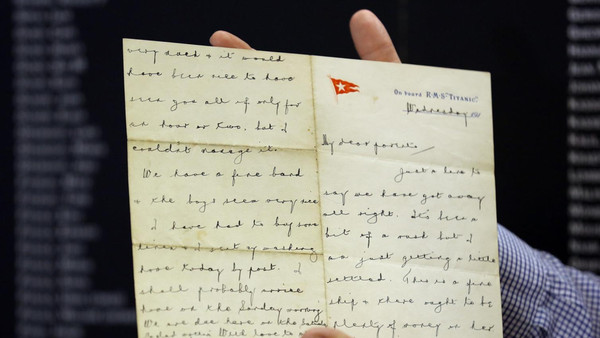 On board R.M.S. "TITANIC".
Wednesday 191
My dear parents
Just a line to
say we have got away
all right. It's been a
bit of a rush but I
am just getting a little
settled. This is a fine
ship & there ought to be
plenty of money in her
very much & it would
have been nice to have
seen you all if only for
an hour or two, but I
couldn't manage it.
We have a fine band
& the boys seem very nice
I have had to buy some
linen & I sent my washing
home today by post. I
shall probably arrive
home on the Sunday morning
We are due here on the Saturday
love to